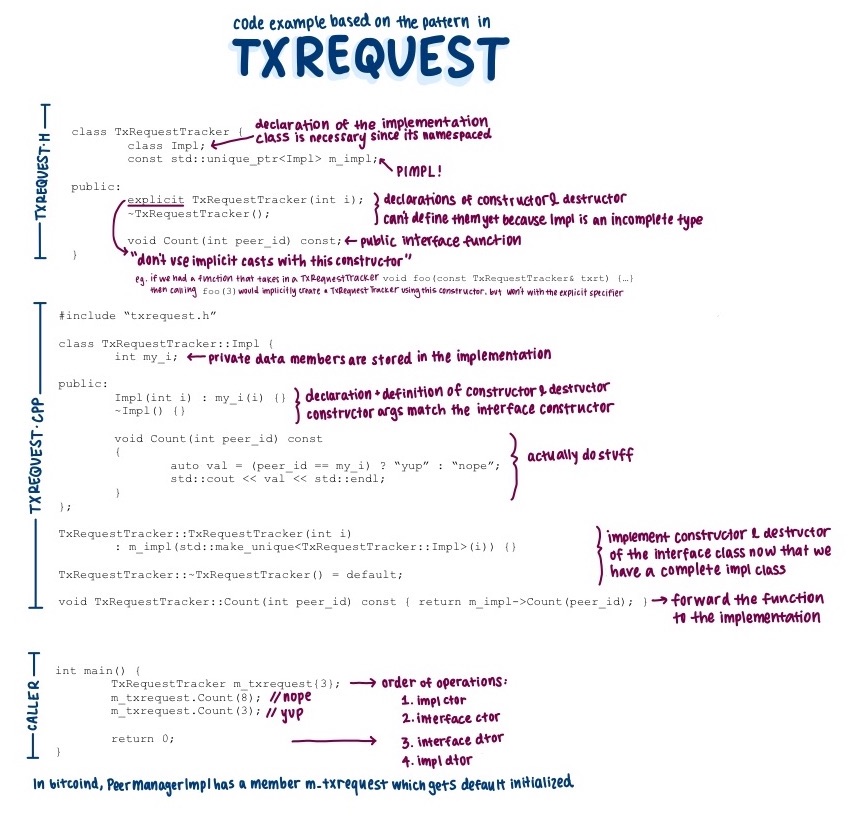 code example based on the pattern in
TXREQUEST
TXREQUEST.H
class TxRequestTracker {
declaration of the implementation
class is necessary since its namespaced
class Impl;
const std::unique_ptr<Impl> m_impl;
PIMPL!
public:
explicit TxRequestTracker(int i);
~TxRequestTracker();
declarations of constructor & destructor
can't define them yet because Impl is an incomplete type
void Count(int peer_id) const; ← public interface function
}
"don't use implicit casts with this constructor"
eg. if we had a function that takes in a TxRequestTracker void foo(const TxRequestTracker& txrt) {…}
then calling foo(3) would implicitly create a TxRequestTracker using this constructor. but won't with the explicit specifier
TXREQUEST.CPP
#include “txrequest.h”
class TxRequestTracker::Impl {
int my_i; ← private data members are stored in the implementation
public:
Impl(int i) : my_i(i) {}
~Impl() {}
declaration + definition of constructor & destructor
constructor args match the interface constructor
void Count(int peer_id) const
{
auto val = (peer_id == my_i) ? “yup” : “nope”;
std::cout << val << std::endl;
}
actually do stuff
};
TxRequestTracker::TxRequestTracker(int i)
: m_impl(std::make_unique<TxRequestTracker::Impl>(i)) {}
TxRequestTracker::~TxRequestTracker() = default;
implement constructor & destructor
of the interface class now that we
have a complete impl class
void TxRequestTracker::Count(int peer_id) const { return m_impl->Count(peer_id); } → forward the function
to the implementation
CALLER
int main() {
TxRequestTracker m_txrequest{3}; → order of operations:
m_txrequest.Count(8); // nope
m_txrequest.Count(3); // yup
1. impl ctor
2. interface ctor
return 0;
3. interface dtor
4. impl dtor
}
In bitcoind, PeerManagerImpl has a member m_txrequest which gets default initialized